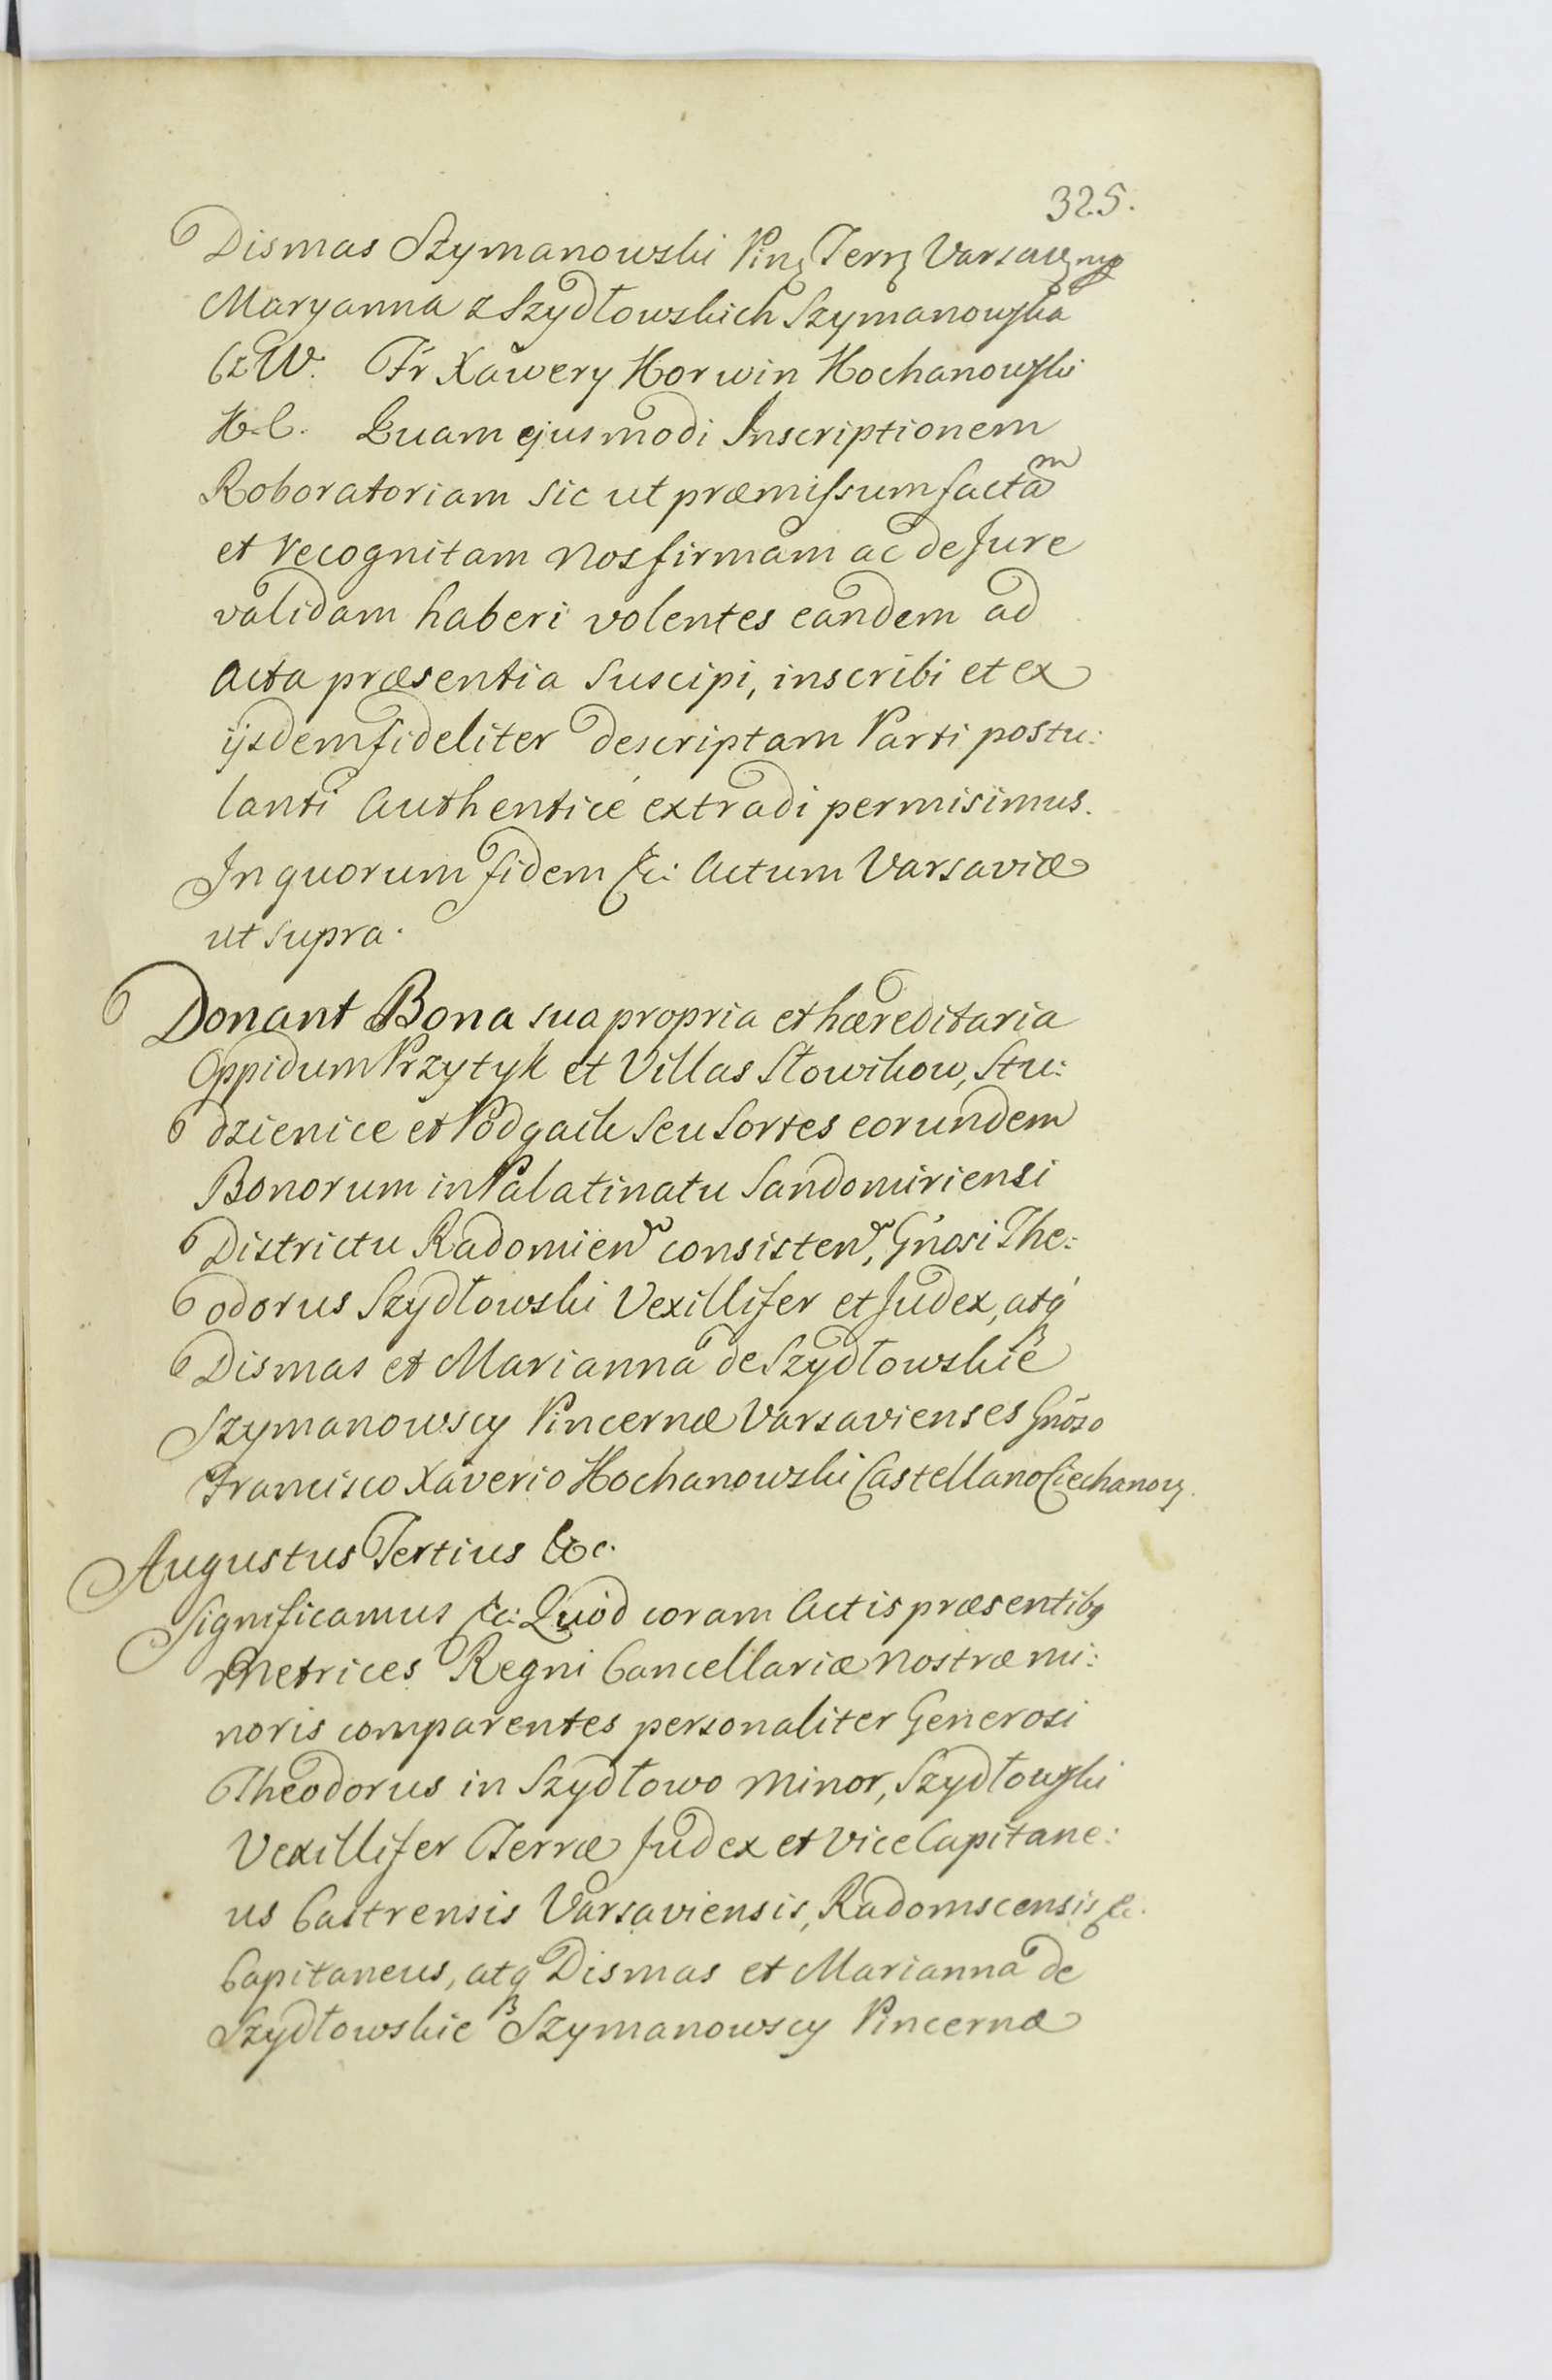 325.
Dismas Szymanowski Pinc Terrę Varsavię mp
Maryanna z Szydłowskich Szymanowska
Cz W. Fr Xawery Korwin Kochanowski
K. C. Quam ejusmodi Inscriptionem
Roboratoriam sic ut præmissum factam
et recognitam nos firmam ac de Jure
validam haberi volentes eandem ad
Acta præsentia suscipi, inscribi et ex
ijsdem fideliter descriptam Parti postu:
lanti Authenticé extradi permisimus.
In quorum fidem &c: Actum Varsaviæ
ut supra.
Donant Bona sua propria et hæreditaria
Oppidum Przytyk et Villas Słowikow, Stu:
dzienice et Podgaik seu sortes eorundem
Bonorum in Palatinatu Sandomiriensi
Districtu Radomien consisten, Gnosi The:
odorus Szydłowski Vexillifer et Judex, atq
Dismas et Marianna de Szydłowskie
Szymanowscy Pincernæ Varsavienses Gnoso
Francisco Xaverio Kochanowski Castellano Ciechanov.
Augustus Tertius &c.
Significamus &c: Quòd coram Actis præsentibq
Metrices Regni Cancellariæ nostræ mi:
noris comparentes personaliter Generosi
Theodorus in Szydłowo minor, Szydłowski
Vexillifer Terræ Judex et ViceCapitane:
us Castrensis Varsaviensis, Radomscensis &c.
Capitaneus, atq Dismas et Marianna de
Szydłowskie Szymanowscy Pincernæ